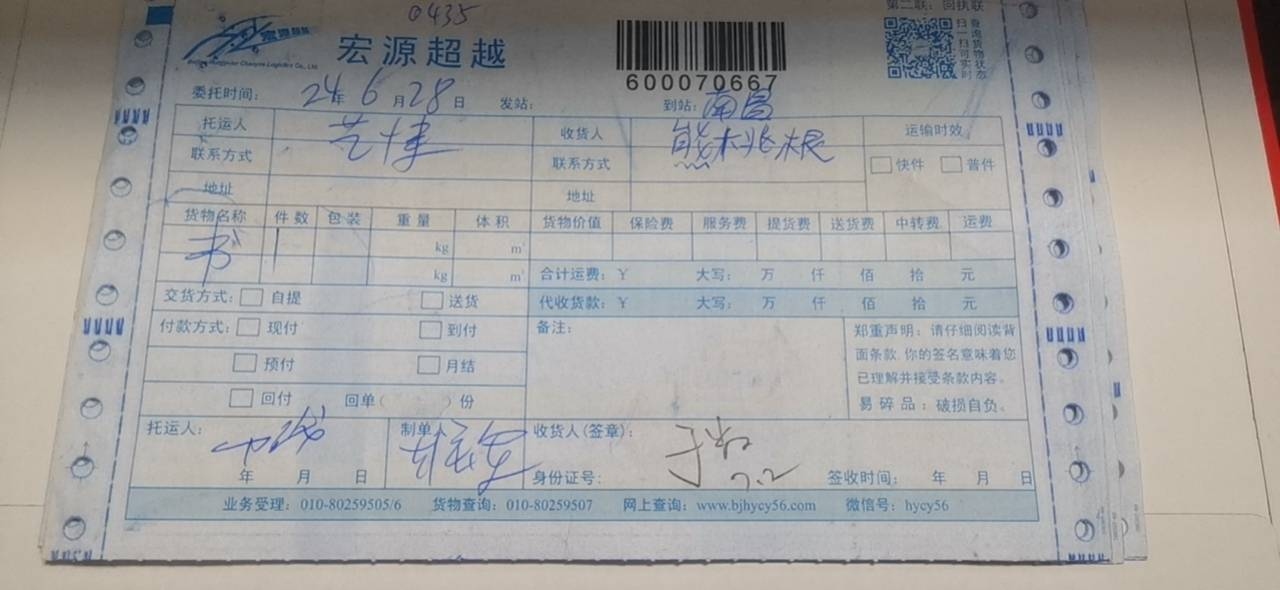 0435
第二联：回执联
宏源超越
宏源超越
扫一扫可实时
查询货物状态
600070667
委托时间： 24年 6月 28日 发站： 到站：南昌
托运人 收货人 熊桃根 运输时效
联系方式 联系方式 快件 普件
地址 地址
货物名称 件数 包装 重量 体积 货物价值 保险费 服务费 提货费 送货费 中转费 运费
书 1 kg m³
kg m³ 合计运费：￥ 大写： 万 仟 佰 拾 元
交货方式： 自提 送货 代收货款：￥ 大写： 万 仟 佰 拾 元
付款方式： 现付 到付 备注： 郑重声明：请仔细阅读背
面条款，你的签名意味着您
预付 月结 已理解并接受条款内容。
回付 回单（ ）份 易碎品：破损自负。
托运人： 制单 收货人（签章）：
年 月 日 身份证号： 7.2 签收时间： 年 月 日
业务受理：010-80259505/6 货物查询：010-80259507 网上查询：www.bjhycy56.com 微信号：hycy56